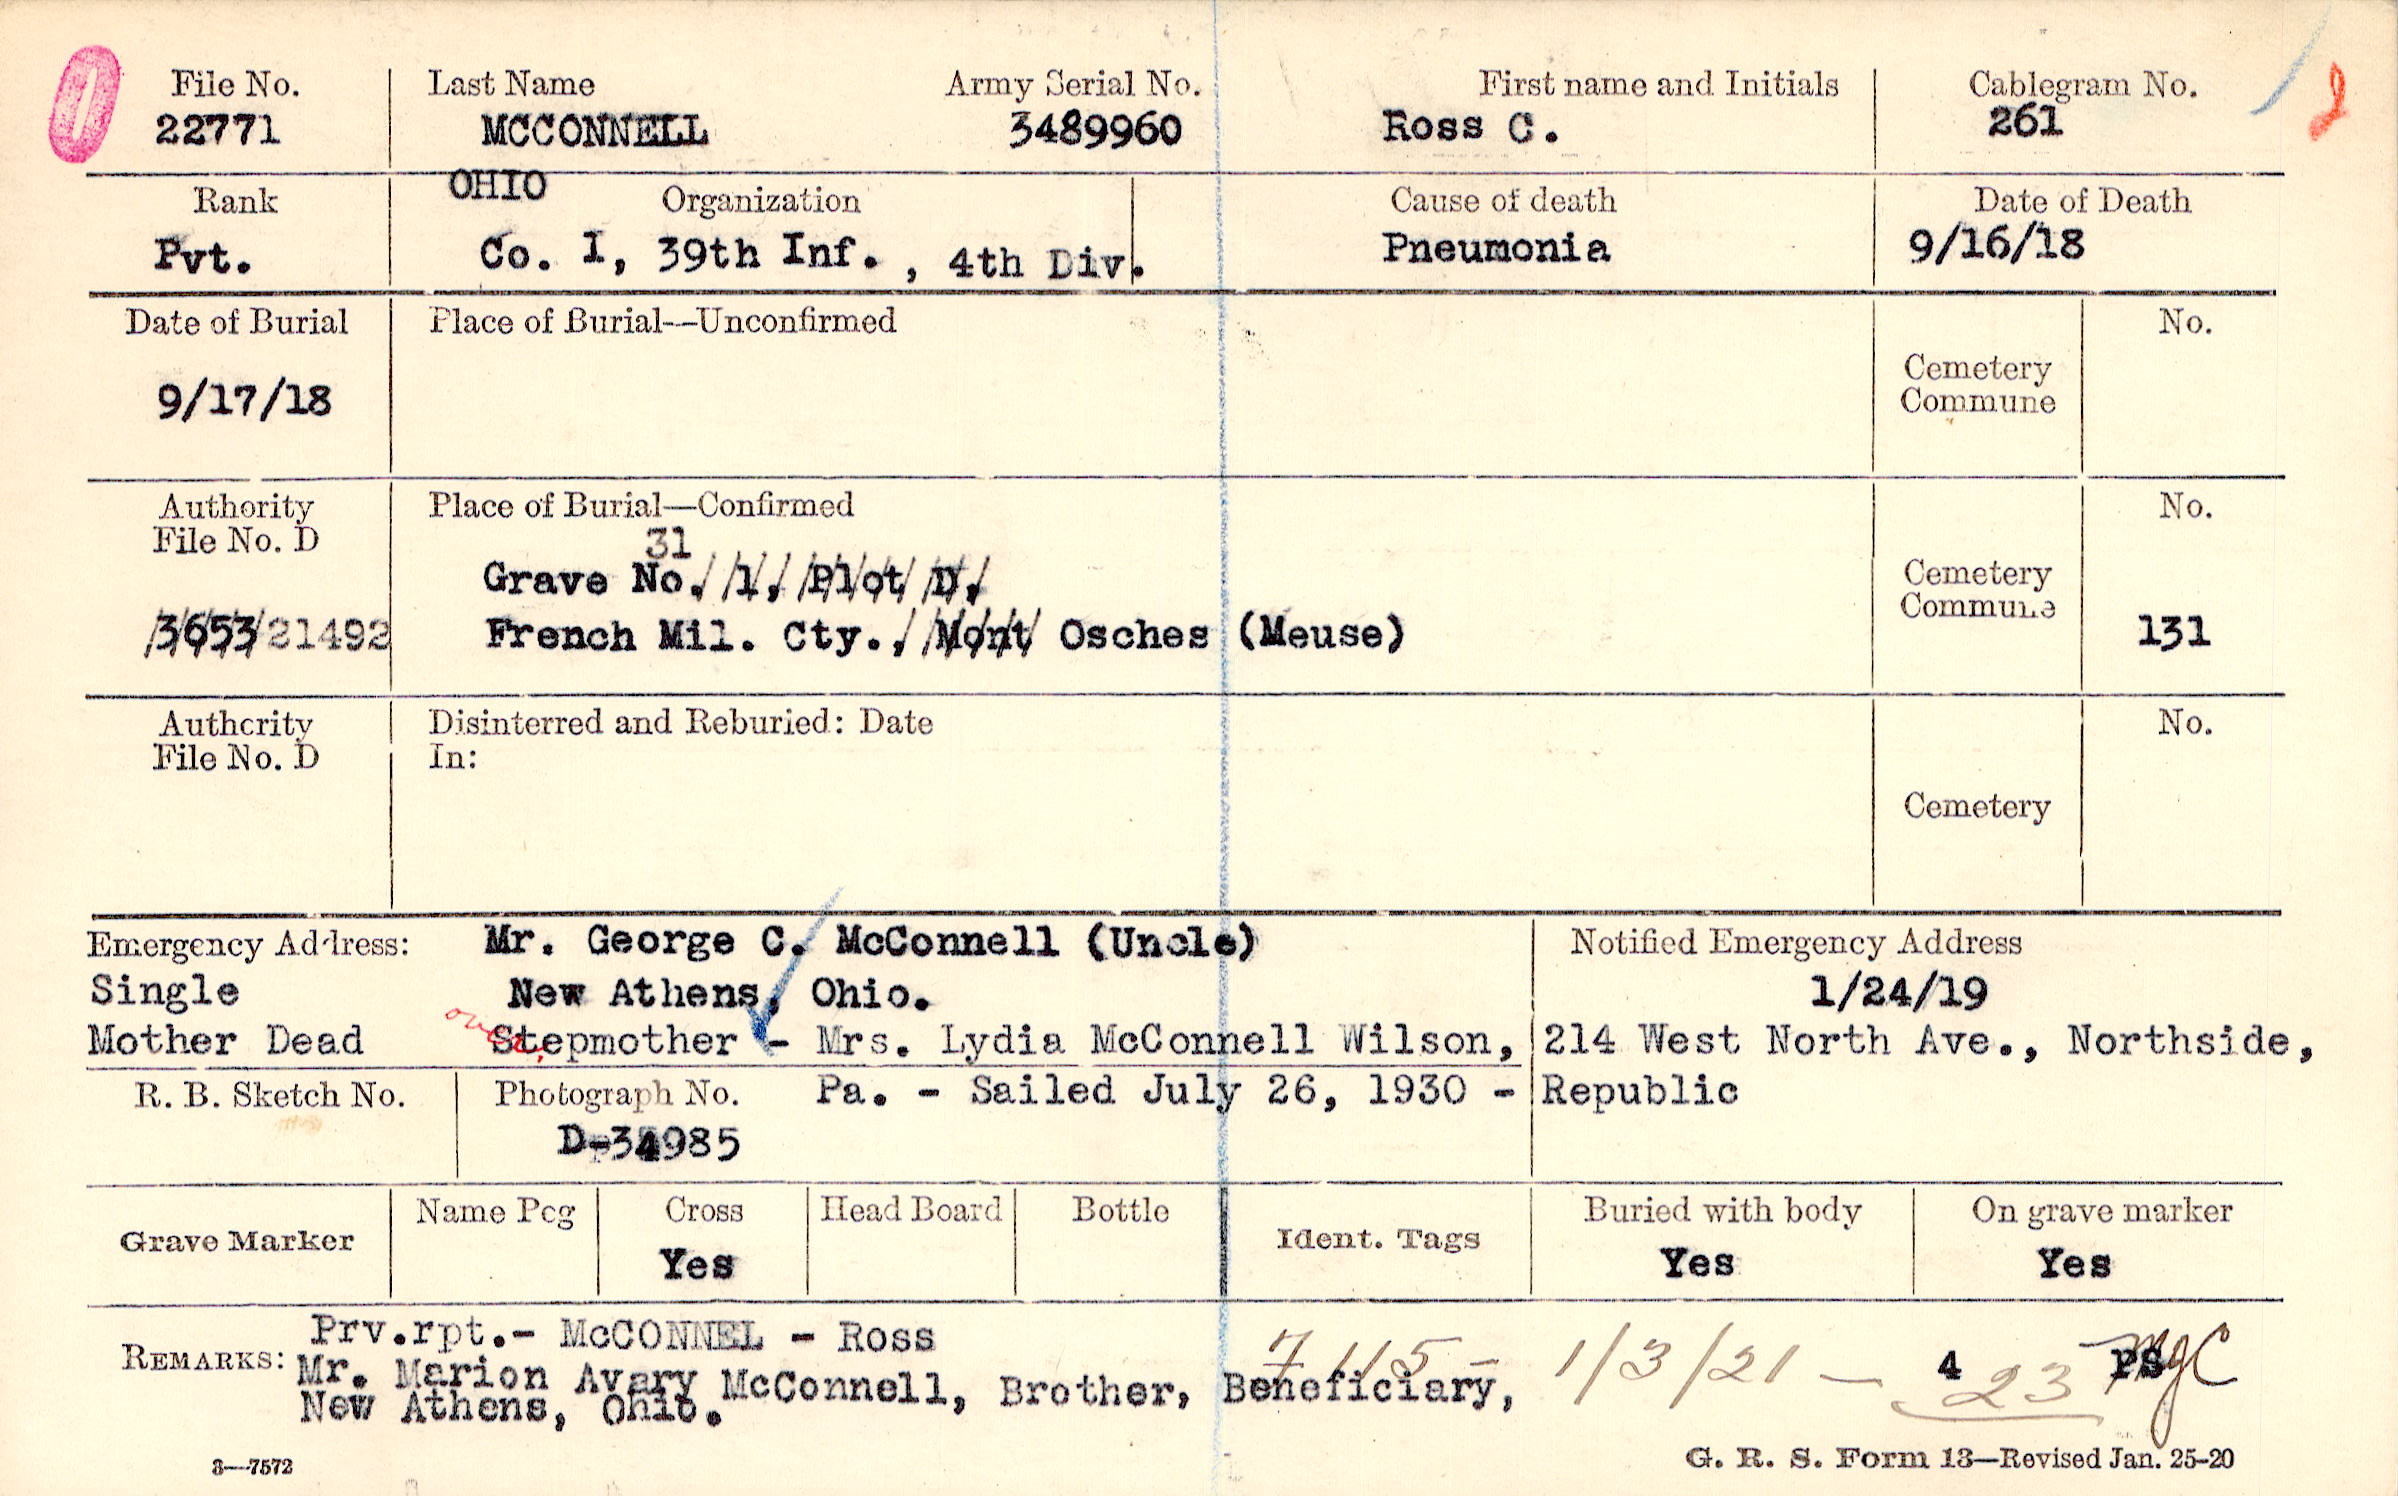 File No. Last Name Army Serial No. First name and Initials Cablegram No.
22771 MCCONNELL 3489960 Ross C. 261
OHIO
Rank Organization Cause of death Date of Death
Pvt. Co. I, 39th Inf., 4th Div. Pneumonia 9/16/18
Date of Burial Place of Burial—Unconfirmed No.
9/17/18 Cemetery
Commune
Authority Place of Burial—Confirmed No.
File No. D
31
Grave No. 1, Plot D, Cemetery
Commune
3653 21492 French Mil. Cty., Mont Osches (Meuse) 131
Authority Disinterred and Reburied: Date No.
File No. D In:
Cemetery
Emergency Address: Mr. George C. McConnell (Uncle) Notified Emergency Address
Single New Athens, Ohio. 1/24/19
over
Mother Dead Stepmother - Mrs. Lydia McConnell Wilson, 214 West North Ave., Northside,
R. B. Sketch No. Photograph No. Pa. - Sailed July 26, 1930 - Republic
D-34985
Grave Marker Name Peg Cross Head Board Bottle Ident. Tags Buried with body On grave marker
Yes Yes Yes
Prv.rpt.- McCONNEL - Ross
REMARKS: Mr. Marion Avary McConnell, Brother, Beneficiary,
New Athens, Ohio.
1/3/21 — 4 PS
23
3—7572 G. R. S. Form 13—Revised Jan. 25-20